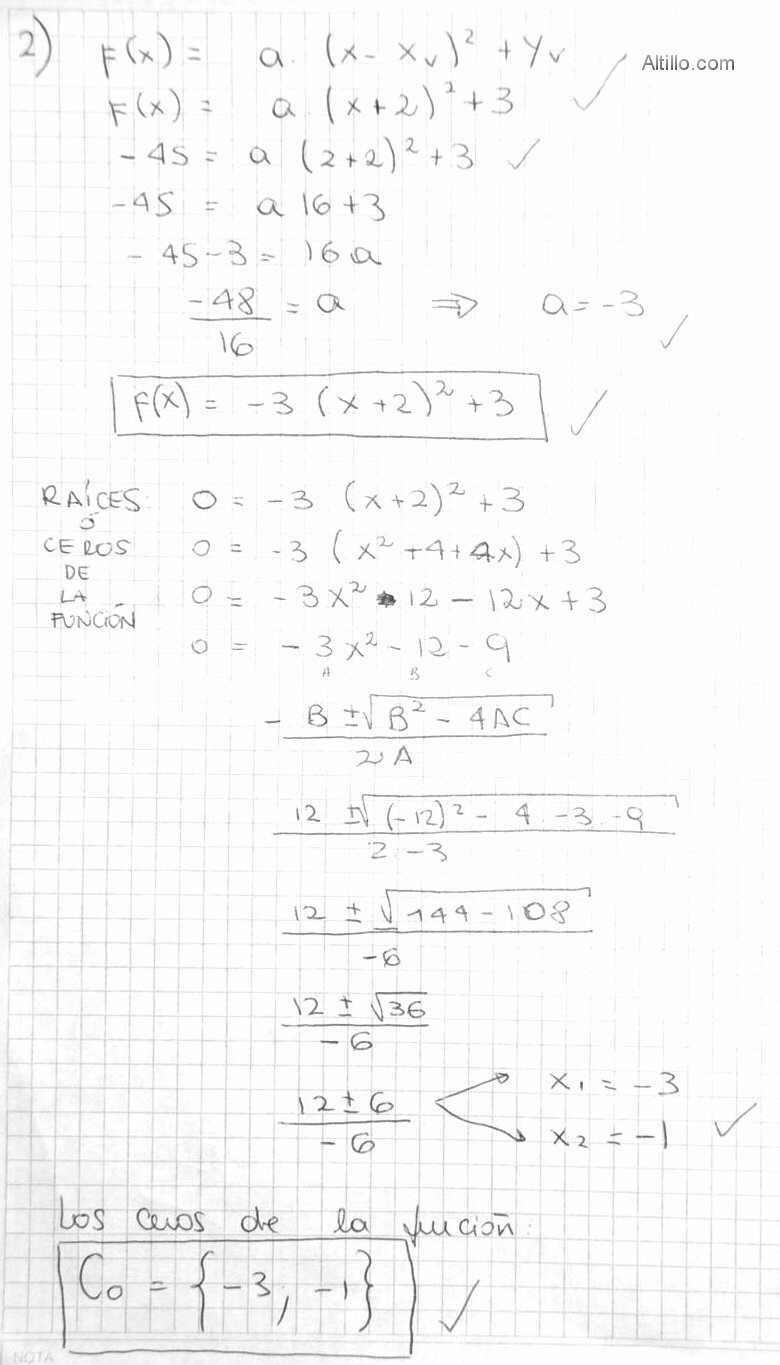 2) F(x) = a. (x - xᵥ)² + yᵥ
Altillo.com
F(x) = a (x+2)² + 3
-45 = a (2+2)² + 3
-45 = a 16 + 3
-45-3 = 16a
-48/16 = a ⇒ a = -3
F(x) = -3 (x+2)² + 3
RAÍCES Ó CEROS DE LA FUNCIÓN
0 = -3 (x+2)² + 3
0 = -3 (x² + 4 + 4x) + 3
0 = -3x² - 12 - 12x + 3
0 = -3x² - 12 - 9
A B C
- B ±√(B² - 4AC) / 2A
12 ±√((-12)² - 4 . -3 . -9) / 2 . -3
12 ± √(144 - 108) / -6
12 ± √36 / -6
12 ± 6 / -6
x₁ = -3
x₂ = -1
Los ceros de la fución:
C₀ = {-3; -1}
NOTA